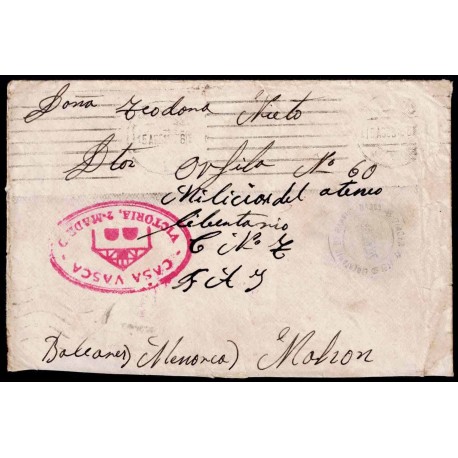 Doña Teodona Nieto
Dtor Orfila Nº 60
Milicias del ateneo
libertario
C Nº 7
F A I
CASA VASCA
VICTORIA, 2-MADRID
Baleares (Menorca) Mahon